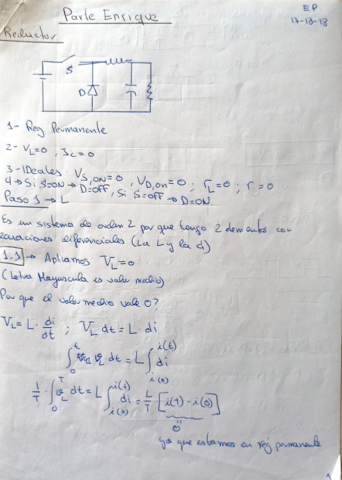 Parte Enrique
EP
17-12-18
Reductor
S
D
1- Reg Permanente
2- VL=0 , Ic=0
3- Ideales: VS,on=0 , VD,on=0 ; rL=0 ; r=0
4→ Si S=ON → D=OFF, Si S=OFF → D=ON.
Paso 1 → L
Es un sistema de orden 2 porque tengo 2 elementos con
ecuaciones diferenciales (La L y la C)
1.1 → Aplicamos VL=0
(Letra Mayuscula es valor medio)
Por que el valor medio vale 0?
VL = L · di/dt ; VL dt = L · di
∫₀ᵗ vL dt = L ∫_{i(0)}^{i(t)} di
1/T · ∫₀ᵀ vL dt = L ∫_{i(0)}^{i(t)} di = L/T [i(T) - i(0)]
0
ya que estamos en reg permanente